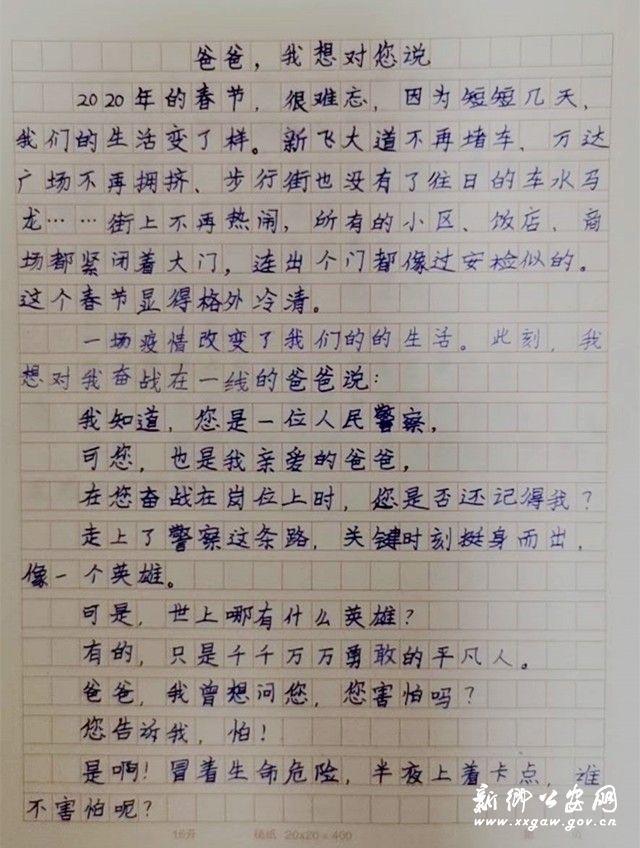 爸爸，我想对您说
2020年的春节，很难忘，因为短短几天，
我们的生活变了样。新飞大道不再堵车、万达
广场不再拥挤、步行街也没有了往日的车水马
龙……街上不再热闹，所有的小区、饭店、商
场都紧闭着大门，连出个门都像过安检似的。
这个春节显得格外冷清。
一场疫情改变了我们的的生活。此刻，我
想对我奋战在一线的爸爸说：
我知道，您是一位人民警察，
可您，也是我亲爱的爸爸，
在您奋战在岗位上时，您是否还记得我？
走上了警察这条路，关键时刻挺身而出，
像一个英雄。
可是，世上哪有什么英雄？
有的，只是千千万万勇敢的平凡人。
爸爸，我曾想问您，您害怕吗？
您告诉我，怕！
是啊！冒着生命危险，半夜上着卡点，谁
不害怕呢？
16开 稿纸 20x20=400 第 页
新乡公安网
www.xxgaw.gov.cn